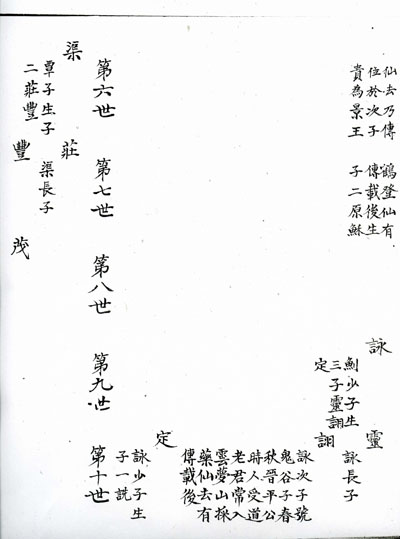 仙去乃傳
位於次子
貴為景王
鶴登仙有
傳載後生
子二原穌
詠
少子生
三子靈詡
定
靈
詠長子
詡
詠次子號
鬼谷子春
秋晉平公
時人受道
老君常入
雲夢山採
藥仙去有
傳載後
定
詠少子生
子一説
第六世
第七世
第八世
第九世
第十世
渠
覃子生子
二莊豐
莊
渠長子
豐
茂